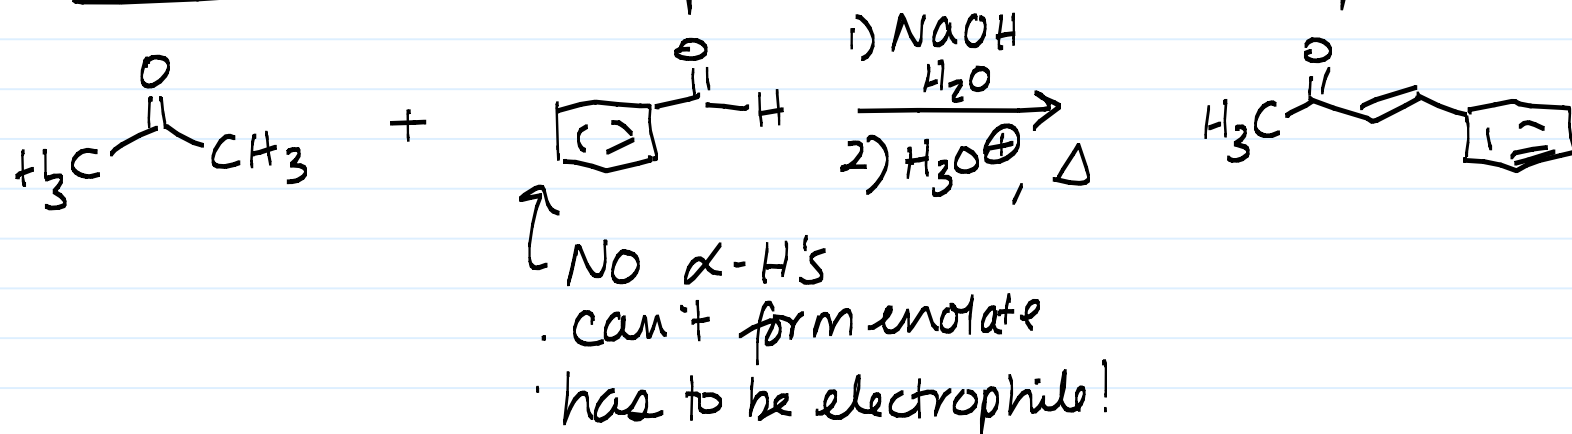 O
H₃C
CH₃
+
O
H
1) NaOH
H₂O
2) H₃O⊕, Δ
O
H₃C
No α-H's
. can't form enolate
· has to be electrophile!